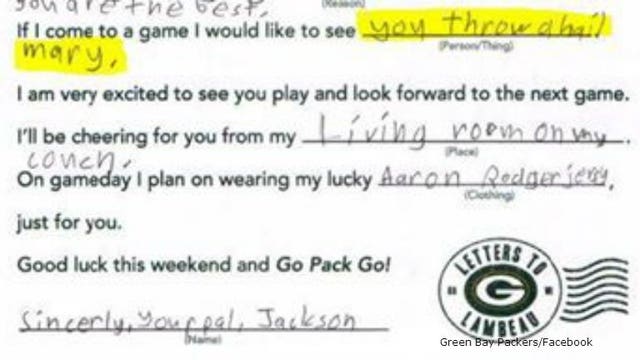 you are the best,
(Reason)
If I come to a game I would like to see you throw a hail
(Person/Thing)
mary,
I am very excited to see you play and look forward to the next game.
I'll be cheering for you from my Living room on my.
(Place)
couch,
On gameday I plan on wearing my lucky Aaron Rodger jersy,
(Clothing)
just for you.
Good luck this weekend and Go Pack Go!
LETTERS TO
G
LAMBEAU
Sincerly, your pal, Jackson
(Name)
Green Bay Packers/Facebook